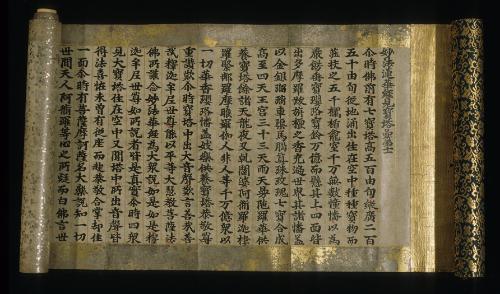 妙法蓮華經見寶塔品第十一
尒時佛前有七寶塔高五百由旬縱廣二百
五十由旬從地涌出住在空中種種寶物而
莊校之五千欄楯龕室千萬無數幢幡以為
嚴飾垂寶瓔珞寶鈴萬億而懸其上四面皆
出多摩羅跋栴檀之香充遍世界其諸幡蓋
以金銀瑠璃車𤦲馬瑙真珠玫瑰七寶合成
高至四天王宮三十三天雨天曼陀羅華供
養寶塔餘諸天龍夜叉乾闥婆阿脩羅迦樓
羅緊那羅摩睺羅伽人非人等千万億眾以
一切華香瓔珞幡蓋妓樂供養寶塔恭敬尊
重讚歎尒時寶塔中出大音聲歎言善哉善
哉釋迦牟尼世尊能以平等大慧教菩薩法
佛所護念妙法華經為大眾說如是如是釋
迦牟尼世尊如所說者皆是真實尒時四眾
見大寶塔住在空中又聞塔中所出音聲皆
得法喜怪未曾有從座而起恭敬合掌却住
一面尒時有菩薩摩訶薩名大樂說知一切
世間天人阿脩羅等心之所疑而白佛言世